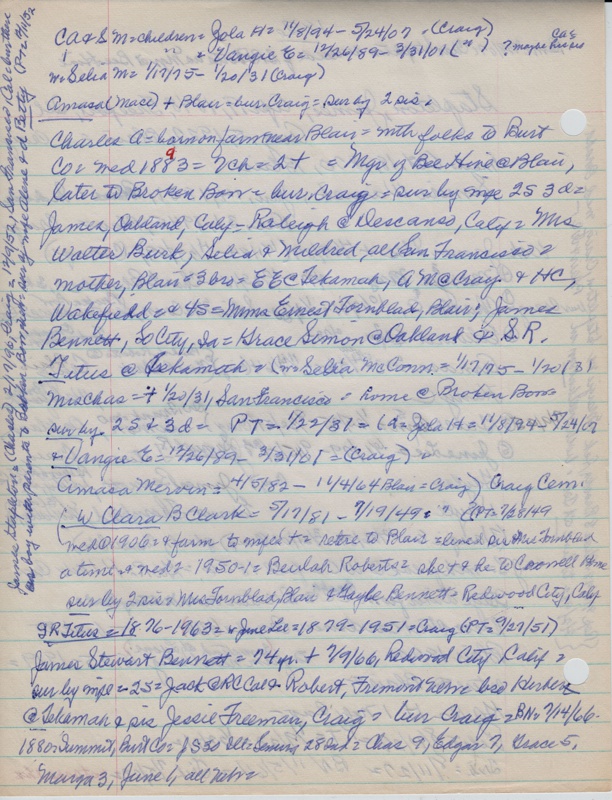 CA & S M = children = Zola H = 11/8/94 - 5/24/07 = (Craig)
" = Vangie E = 12/26/89 - 3/31/01 ( " ) ? maybe
m = Selia M = 1/17/75 - 1/20/31 (Craig)
Amasa (Mace) + Blair = bur. Craig = sur by 2 sis.
Charles A = born on farm near Blair = mth folks to Burt
Co = med 1889 = 7 ch = 2 + = Mgr of Bee Hive @ Blair,
later to Broken Bow = bur. Craig = sur by mpe 2S 3d =
James, Oakland, Calif = Raleigh @ Descanso, Calif = Mrs
Walter Burk, Selia & Mildred, all San Francisco =
mother, Blair = 3 bro = E E @ Tekamah, A M @ Craig & H C,
Wakefield = & 4S = Mmes Ernest Tornblad, Blair; James
Bennett, So City, Ia = Grace Simon @ Oakland & S.R.
Titus @ Tekamah = (m = Selia McConn = 1/17/75 - 1/20/31
Mrs Chas = + 1/20/31, San Francisco = home @ Broken Bow =
sur by 2S & 3d = PT = 1/22/31 = (a = Zola H = 11/8/94 - 5/24/07
& Vangie E = 12/26/89 - 3/31/01 = (Craig) =
Amasa Mervin = 4/5/82 - 11/4/64 Blair = Craig) Craig Cem.
W Clara B Clark = 5/17/81 - 7/19/49 = " (PT = 7/28/49
med @ 1906 = & farm to mpe's + = retire to Blair = lived
a time & med = 1950-1 = Beulah Roberts = she + & he to Crowell Home
sur by 2 sis = Mrs Tornblad, Blair & Bennett = Redwood City, Calif
S R Titus = 1876-1963 = w June Lee = 1879-1951 = Craig (PT = 9/27/51)
James Stewart Bennett = 74 yr. + 7/9/66, Redwood City Calif =
sur by mpe = 2S = Jack @ RC Cal & Robert, Fremont Nebr = bro Herbert
@ Tekamah & sis Jessie Freeman, Craig = bur Craig = BN = 7/14/66.
1880 = Summit, Burt Co = J S 30 Ill = 28 = Chas 9, Edgar 7, Grace 5,
3, June 1, all Nebr =
James Stapleton = (Chas A) = 2/17/90 Craig = 1/9/52, San Francisco, Cal = bur there
& d Betty (PT =